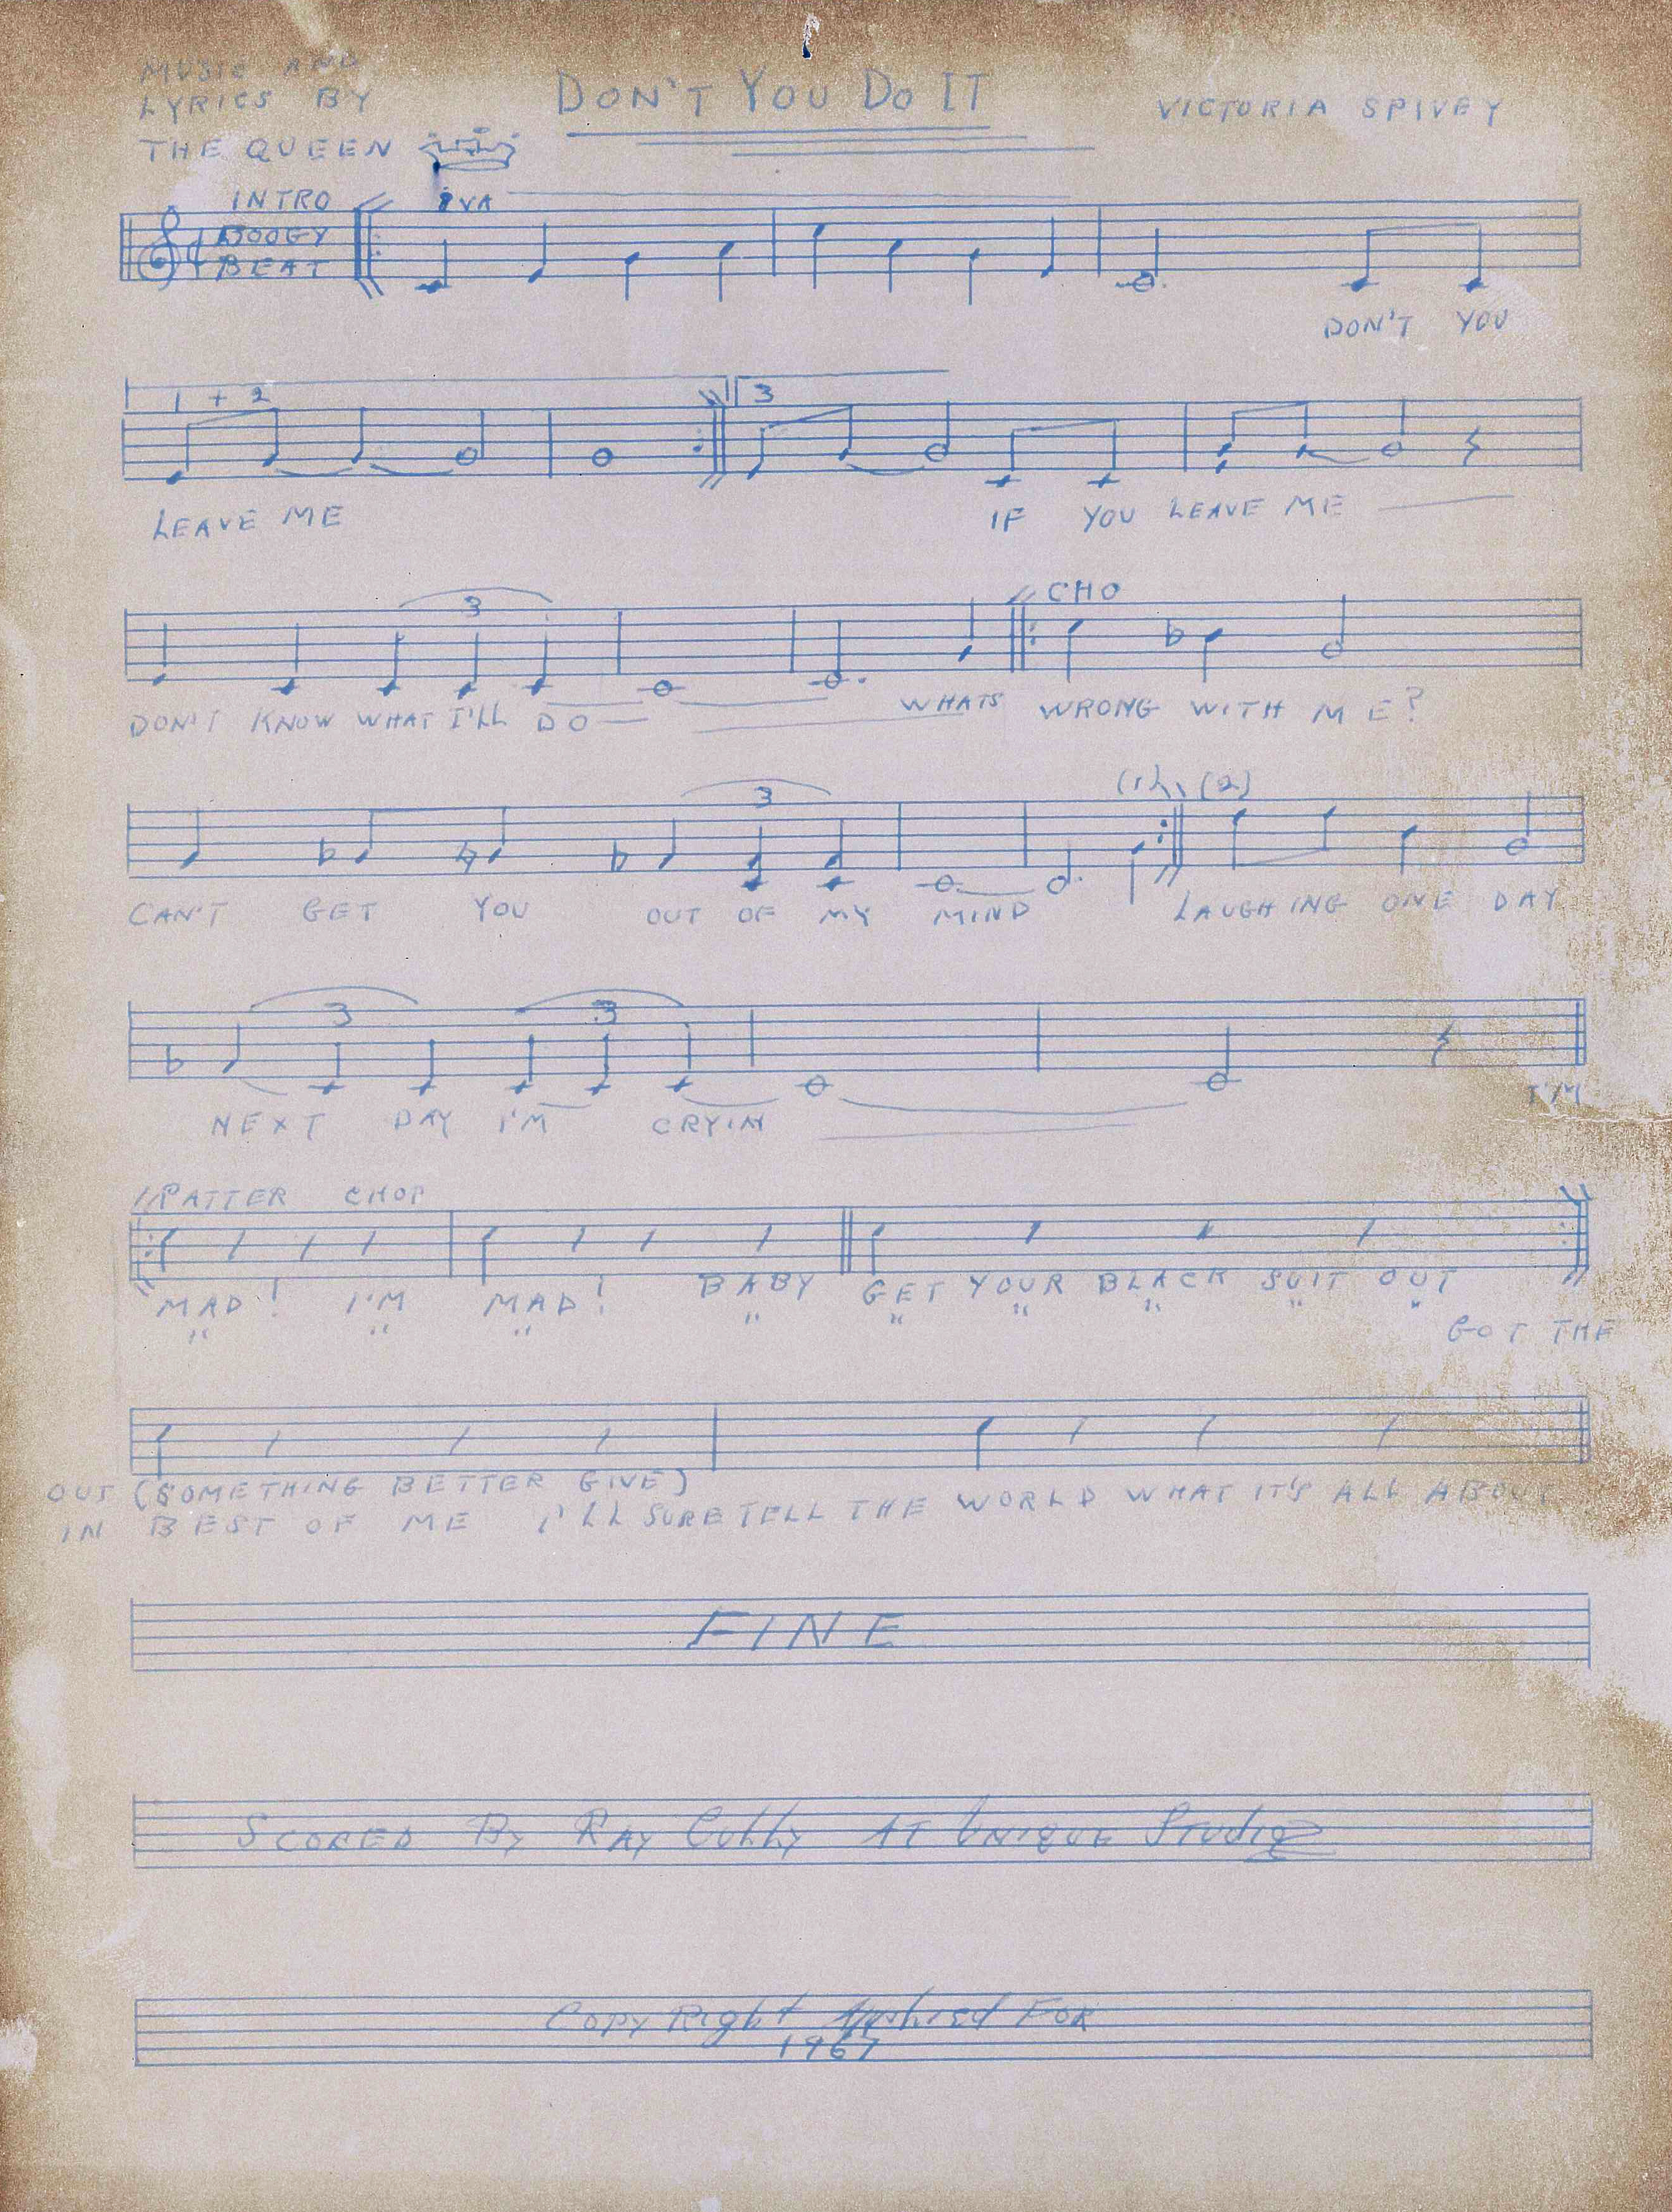 MUSIC AND
LYRICS BY
THE QUEEN
DON'T YOU DO IT
VICTORIA SPIVEY
INTRO
BOOGY
BEAT
8VA
DON'T YOU
1 + 2
3
LEAVE ME IF YOU LEAVE ME
3
CHO
DON'T KNOW WHAT I'LL DO WHATS WRONG WITH ME?
3
(1) (2)
CAN'T GET YOU OUT OF MY MIND LAUGHING ONE DAY
3 3
NEXT DAY I'M CRYIN I'M
PATTER CHOP
MAD! I'M MAD! BABY GET YOUR BLACK SUIT OUT
" " " " " " " " "
GOT THE
OUT (SOMETHING BETTER GIVE)
IN BEST OF ME I'LL SURE TELL THE WORLD WHAT IT'S ALL ABOUT
FINE
SCORED BY RAY AT UNIQUE STUDIO
COPYRIGHT APPLIED FOR
1967